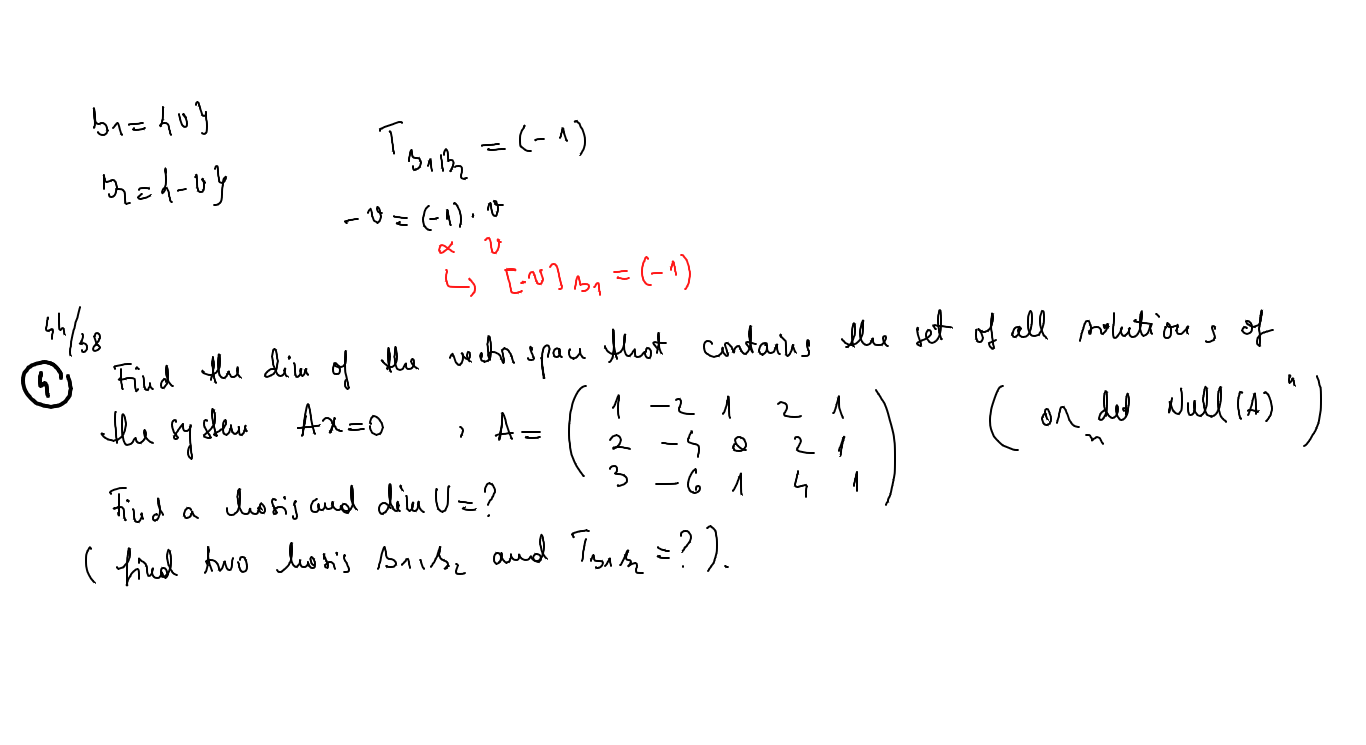 B1 = {v}
B2 = {-v}
T B1B2 = (-1)
-v = (-1) · v
α v
↳ [-v] B1 = (-1)
44/38
④ Find the dim of the vector space that contains the set of all solutions of
the system Ax=0 , A= ( 1 -2 1 2 1 (or "Null(A)")
2 -4 0 2 1
3 -6 1 4 1 )
Find a basis and dim U=?
( find two basis B1,B2 and T B1B2 =? ).